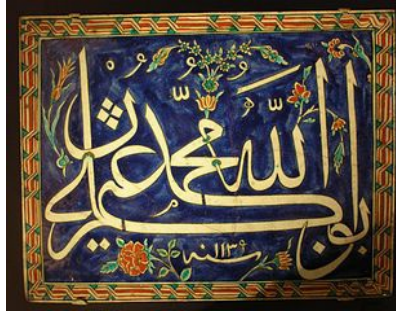 الله محمد ابو بكر عمر عثمان علي
سنه ١١٣٩